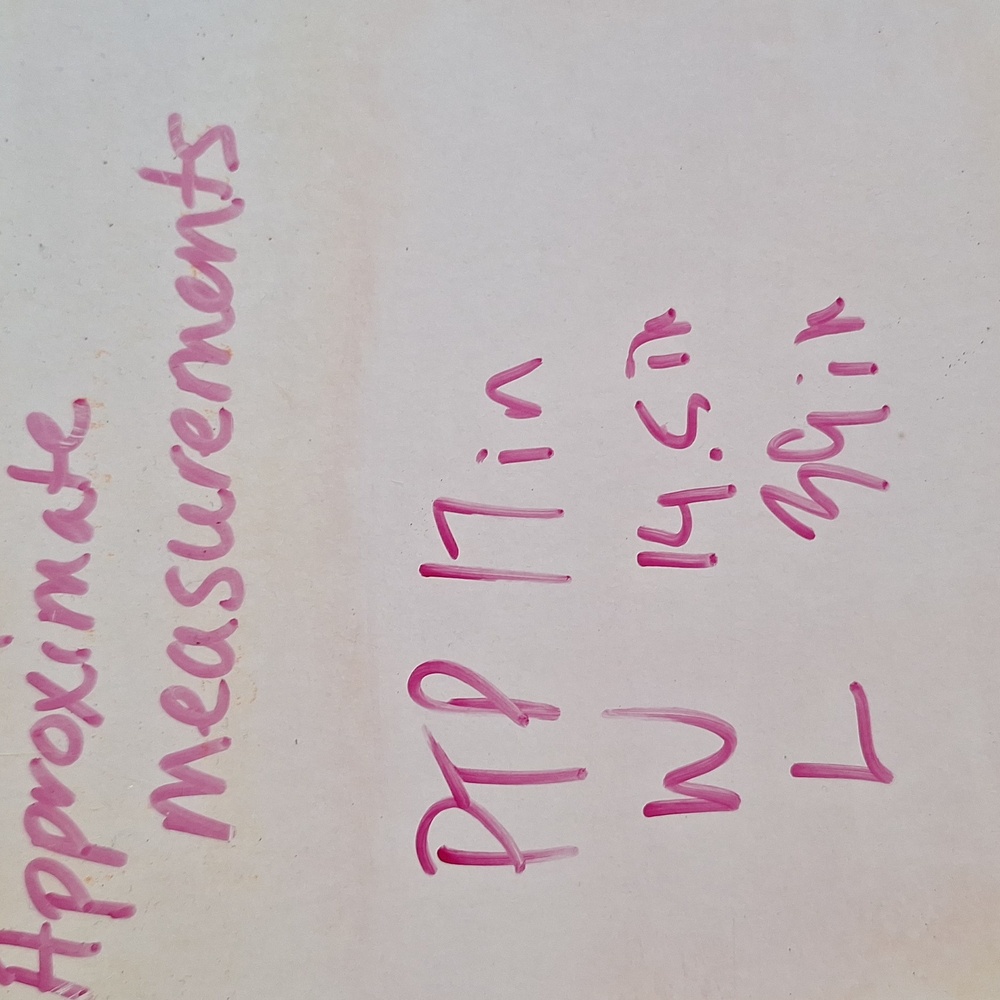 Approximate
measurements
PTP 17 in
W 14.5 in
L 39 in